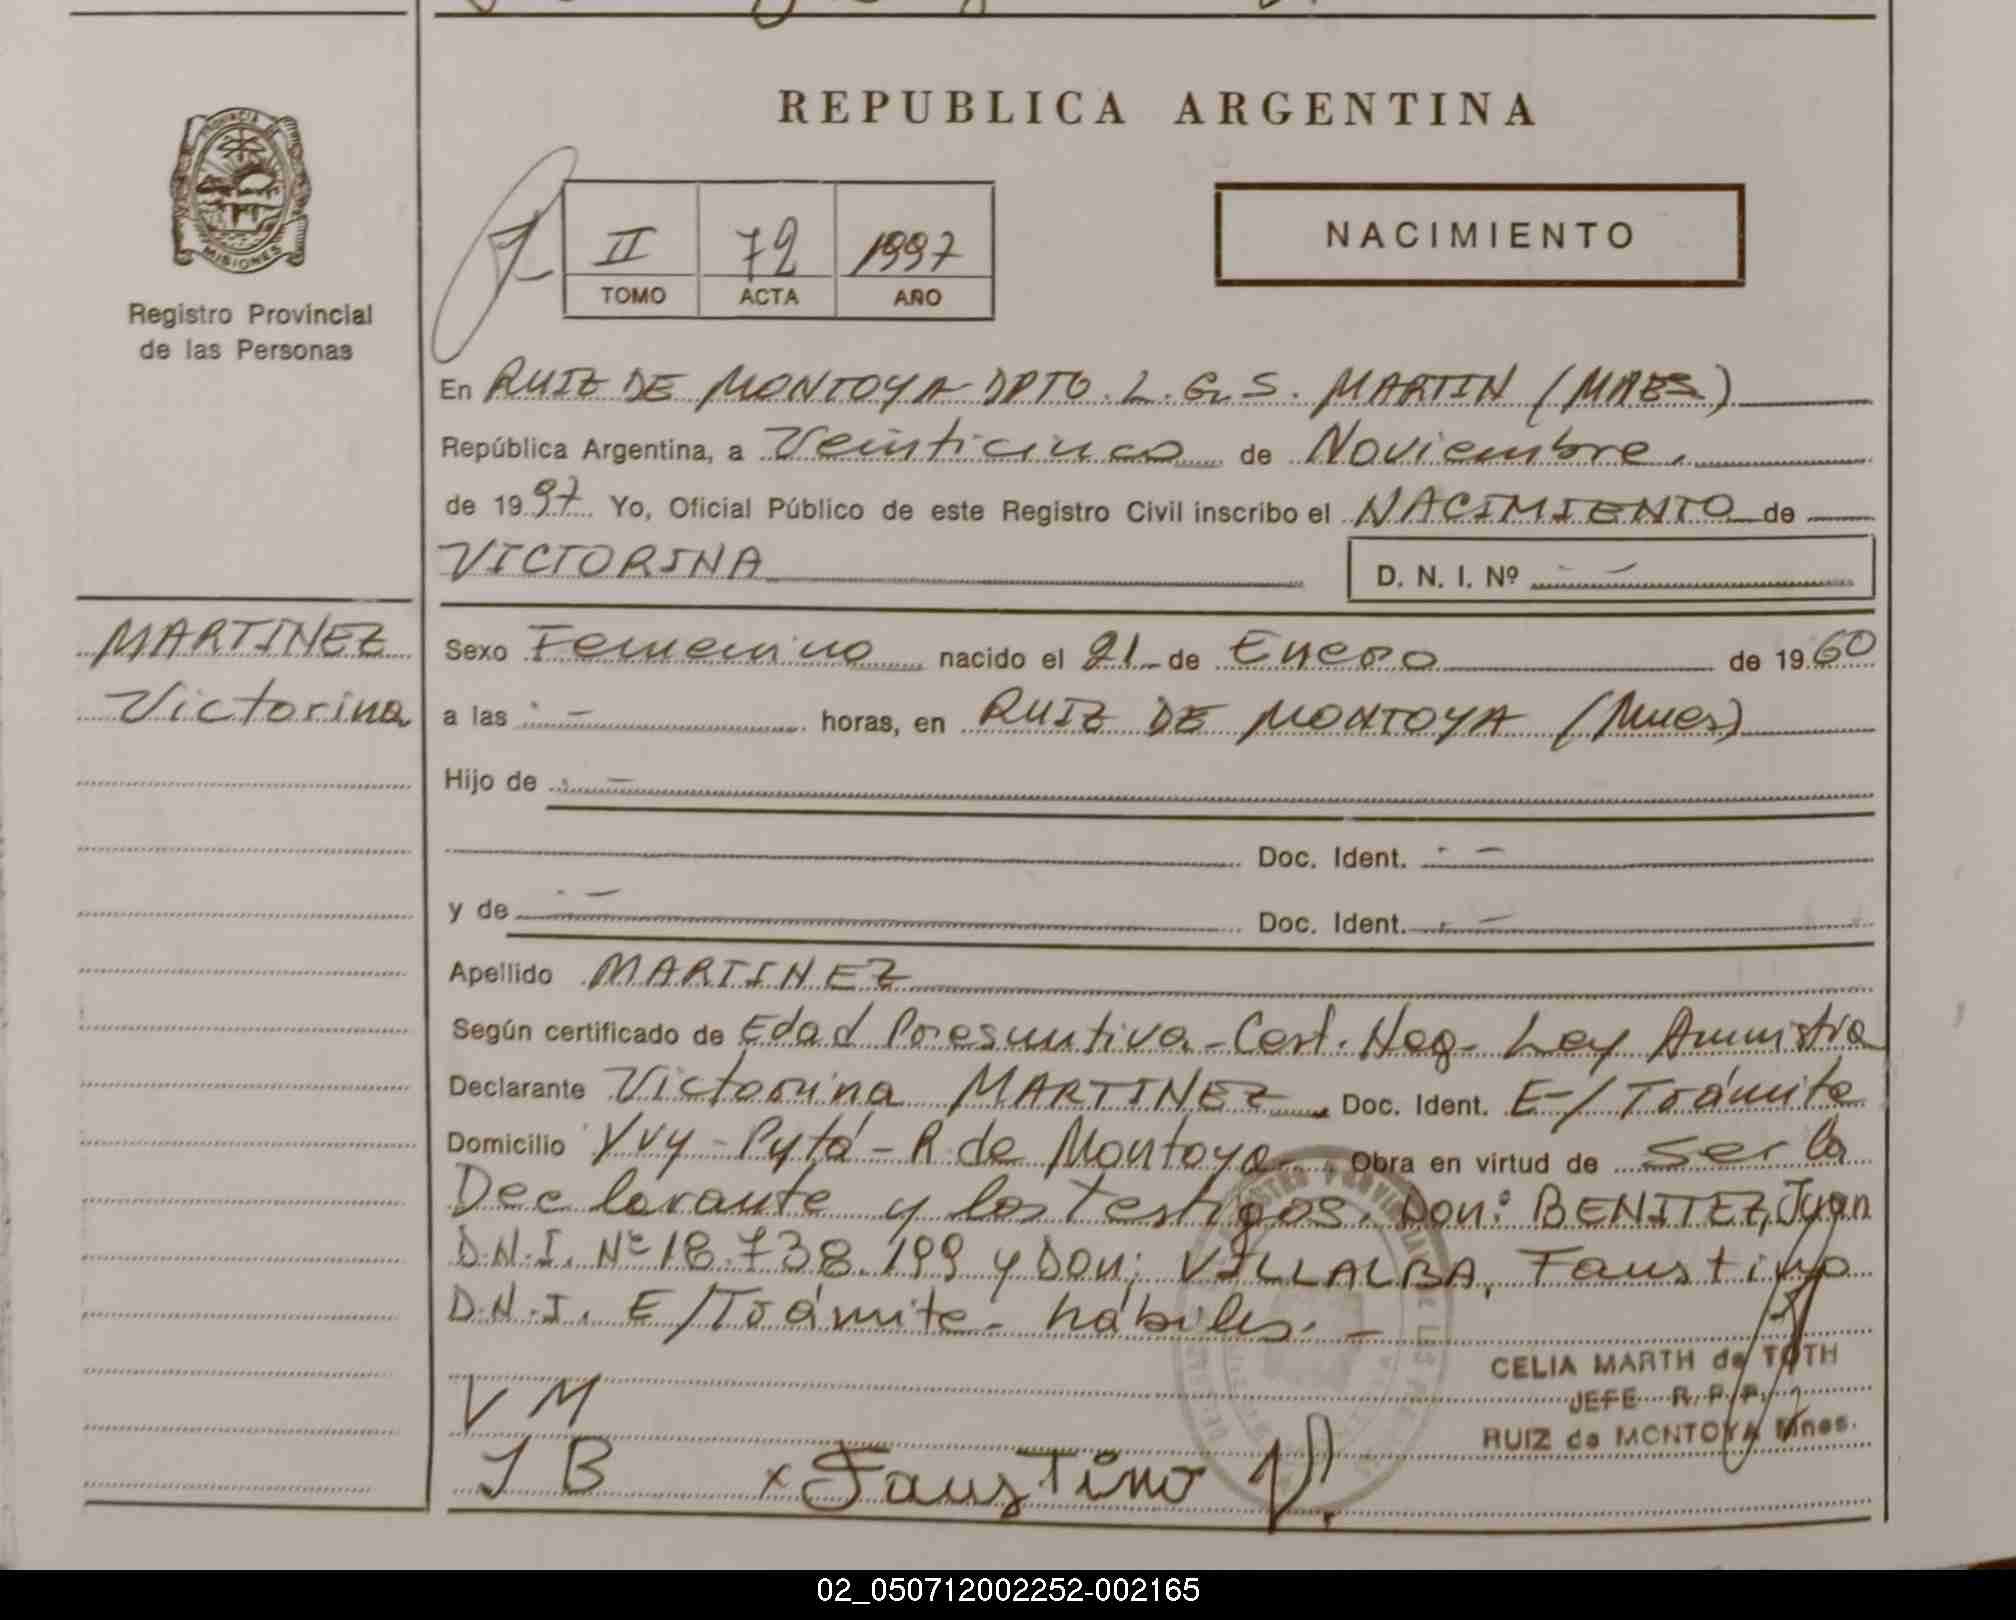 REPUBLICA ARGENTINA
PROVINCIA DE
MISIONES
Registro Provincial
de las Personas
II 72 1997
TOMO ACTA AÑO
NACIMIENTO
En RUIZ DE MONTOYA DPTO. L. G. S. MARTIN (MNES)
República Argentina, a Veinticinco de Noviembre.
de 1997 Yo, Oficial Público de este Registro Civil inscribo el NACIMIENTO de
VICTORINA
D. N. I. Nº - -
MARTINEZ
Victorina
Sexo Femenino nacido el 21 - de Enero de 1960
a las - - horas, en RUIZ DE MONTOYA (Mnes)
Hijo de - -
Doc. Ident. - -
y de - - Doc. Ident. - -
Apellido MARTINEZ
Según certificado de Edad Presuntiva - Cert. Neg - Ley Amnistia
Declarante Victorina MARTINEZ Doc. Ident. E-/Trámite
Domicilio Yvy - Pytá - R de Montoya Obra en virtud de ser la
Declarante y los testigos. Don: BENITEZ, Juan
D.N.I. Nº 18.738.199 y Don; VILLALBA, Faustino
D.N.I. E/Trámite - hábiles. -
CELIA MARTH de TOTH
JEFE R. P. P.
RUIZ de MONTOYA Mnes.
V M
J B x Faustino V.
02_050712002252-002165